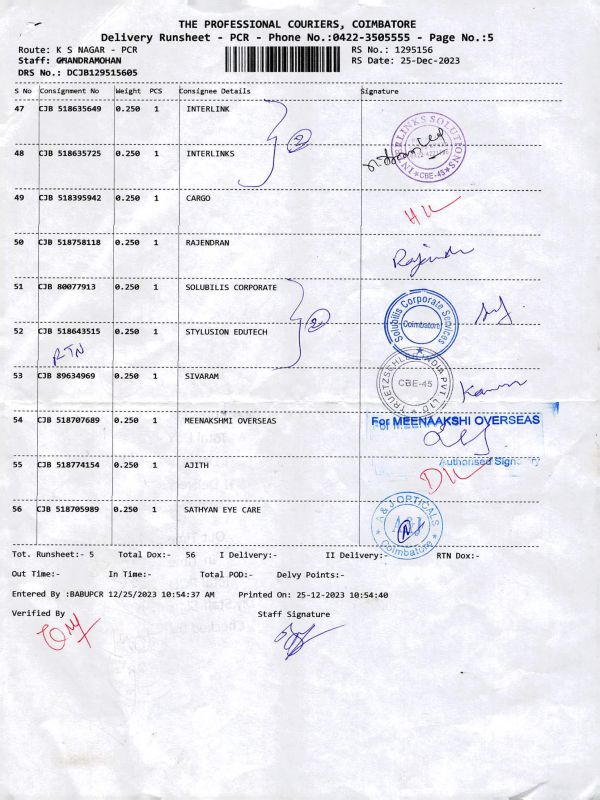 THE PROFESSIONAL COURIERS, COIMBATORE
Delivery Runsheet - PCR - Phone No.:0422-3505555 - Page No.:5
Route: K S NAGAR - PCR RS No.: 1295156
Staff: CHANDRAMOHAN RS Date: 25-Dec-2023
DRS No.: DCJB129515605
S No Consignment No Weight PCS Consignee Details Signature
47 CJB 518635649 0.250 1 INTERLINK
2
48 CJB 518635725 0.250 1 INTERLINKS
INTERLINKS SOLUTIONS
CBE-45
49 CJB 518395942 0.250 1 CARGO
50 CJB 518758118 0.250 1 RAJENDRAN
51 CJB 80077913 0.250 1 SOLUBILIS CORPORATE
2
Solubilis Corporate Services
Coimbatore
52 CJB 518643515 0.250 1 STYLUSION EDUTECH
RTN
53 CJB 89634969 0.250 1 SIVARAM
TRUETZSCHLER INDIA PVT. LTD
CBE-45
54 CJB 518707689 0.250 1 MEENAKSHMI OVERSEAS
For MEENAAKSHI OVERSEAS
Authorised Signatory
55 CJB 518774154 0.250 1 AJITH
56 CJB 518705989 0.250 1 SATHYAN EYE CARE
A & J OPTICALS
A&J
Coimbatore
Tot. Runsheet:- 5 Total Dox:- 56 I Delivery:- II Delivery:- RTN Dox:-
Out Time:- In Time:- Total POD:- Delvy Points:-
Entered By :BABUPCR 12/25/2023 10:54:37 AM Printed On: 25-12-2023 10:54:40
Verified By Staff Signature